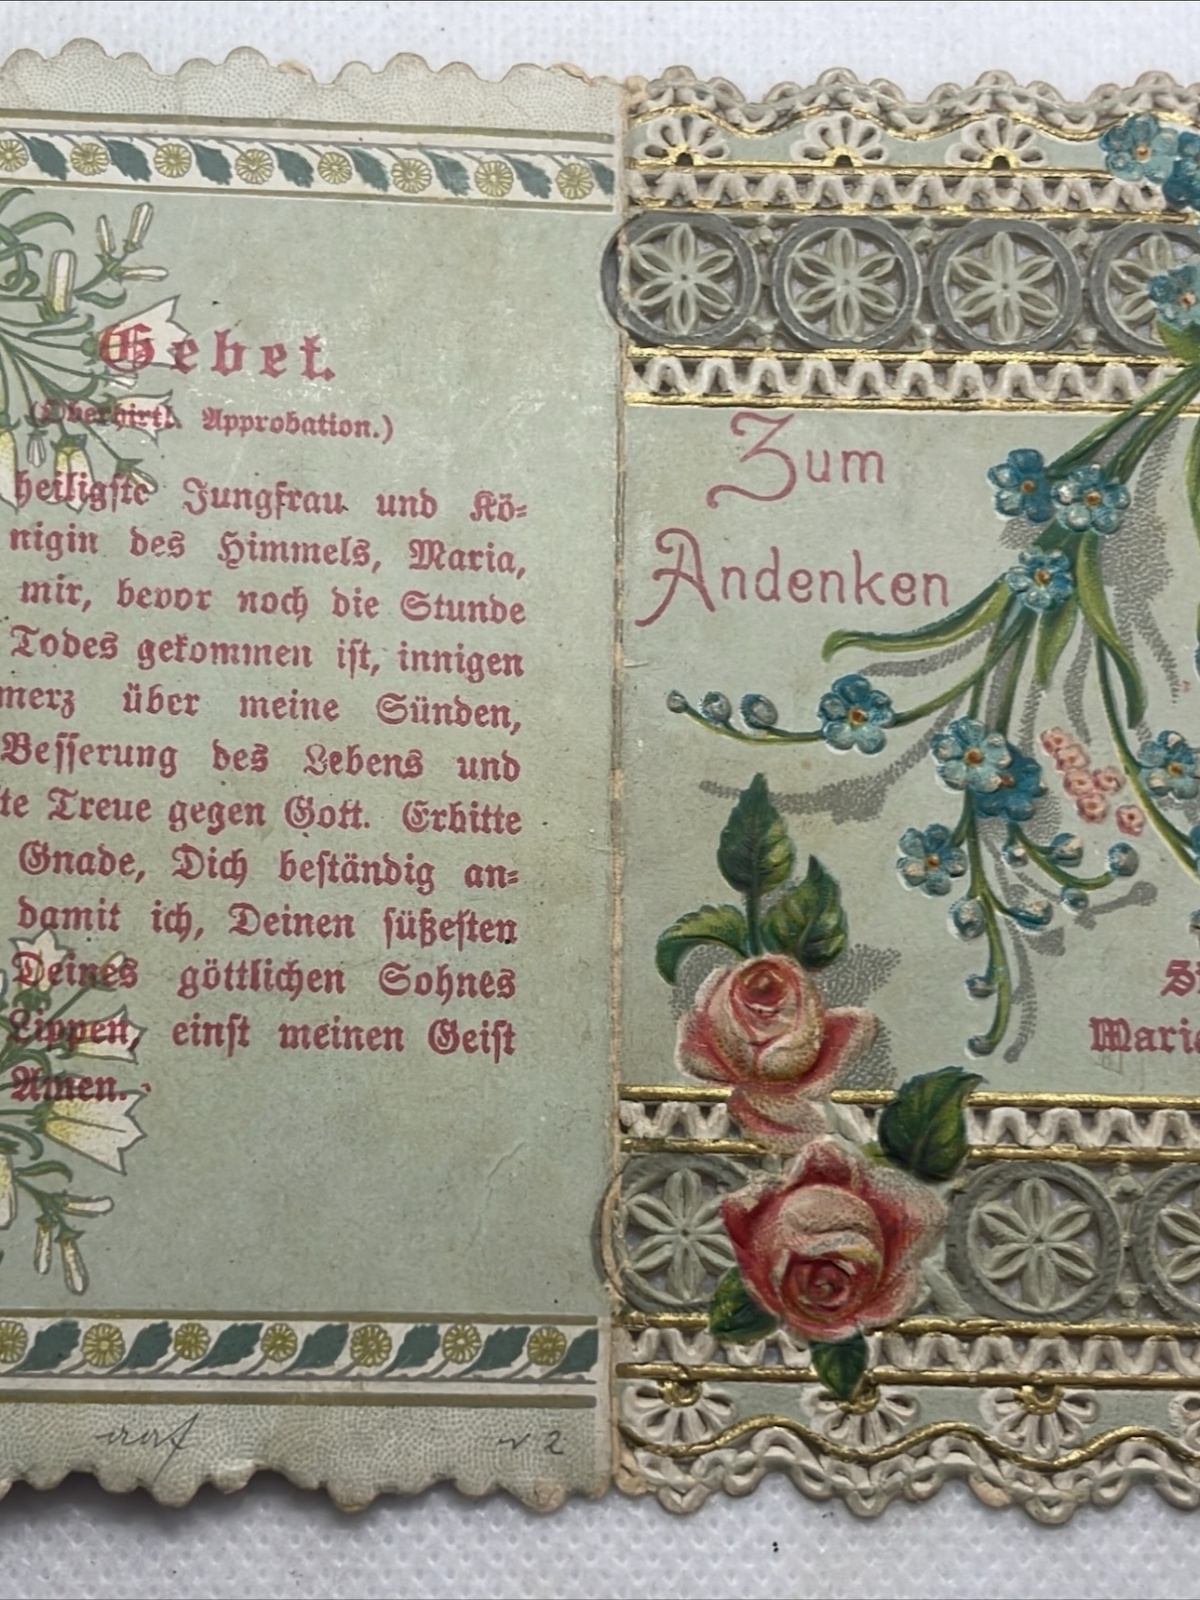 Gebet.
(Oberhirtl. Approbation.)
heiligste Jungfrau und Kö-
nigin des Himmels, Maria,
mir, bevor noch die Stunde
Todes gekommen ist, innigen
merz über meine Sünden,
Besserung des Lebens und
te Treue gegen Gott. Erbitte
Gnade, Dich beständig an-
damit ich, Deinen süßesten
Deines göttlichen Sohnes
Lippen, einst meinen Geist
Amen.
2
Zum
Andenken